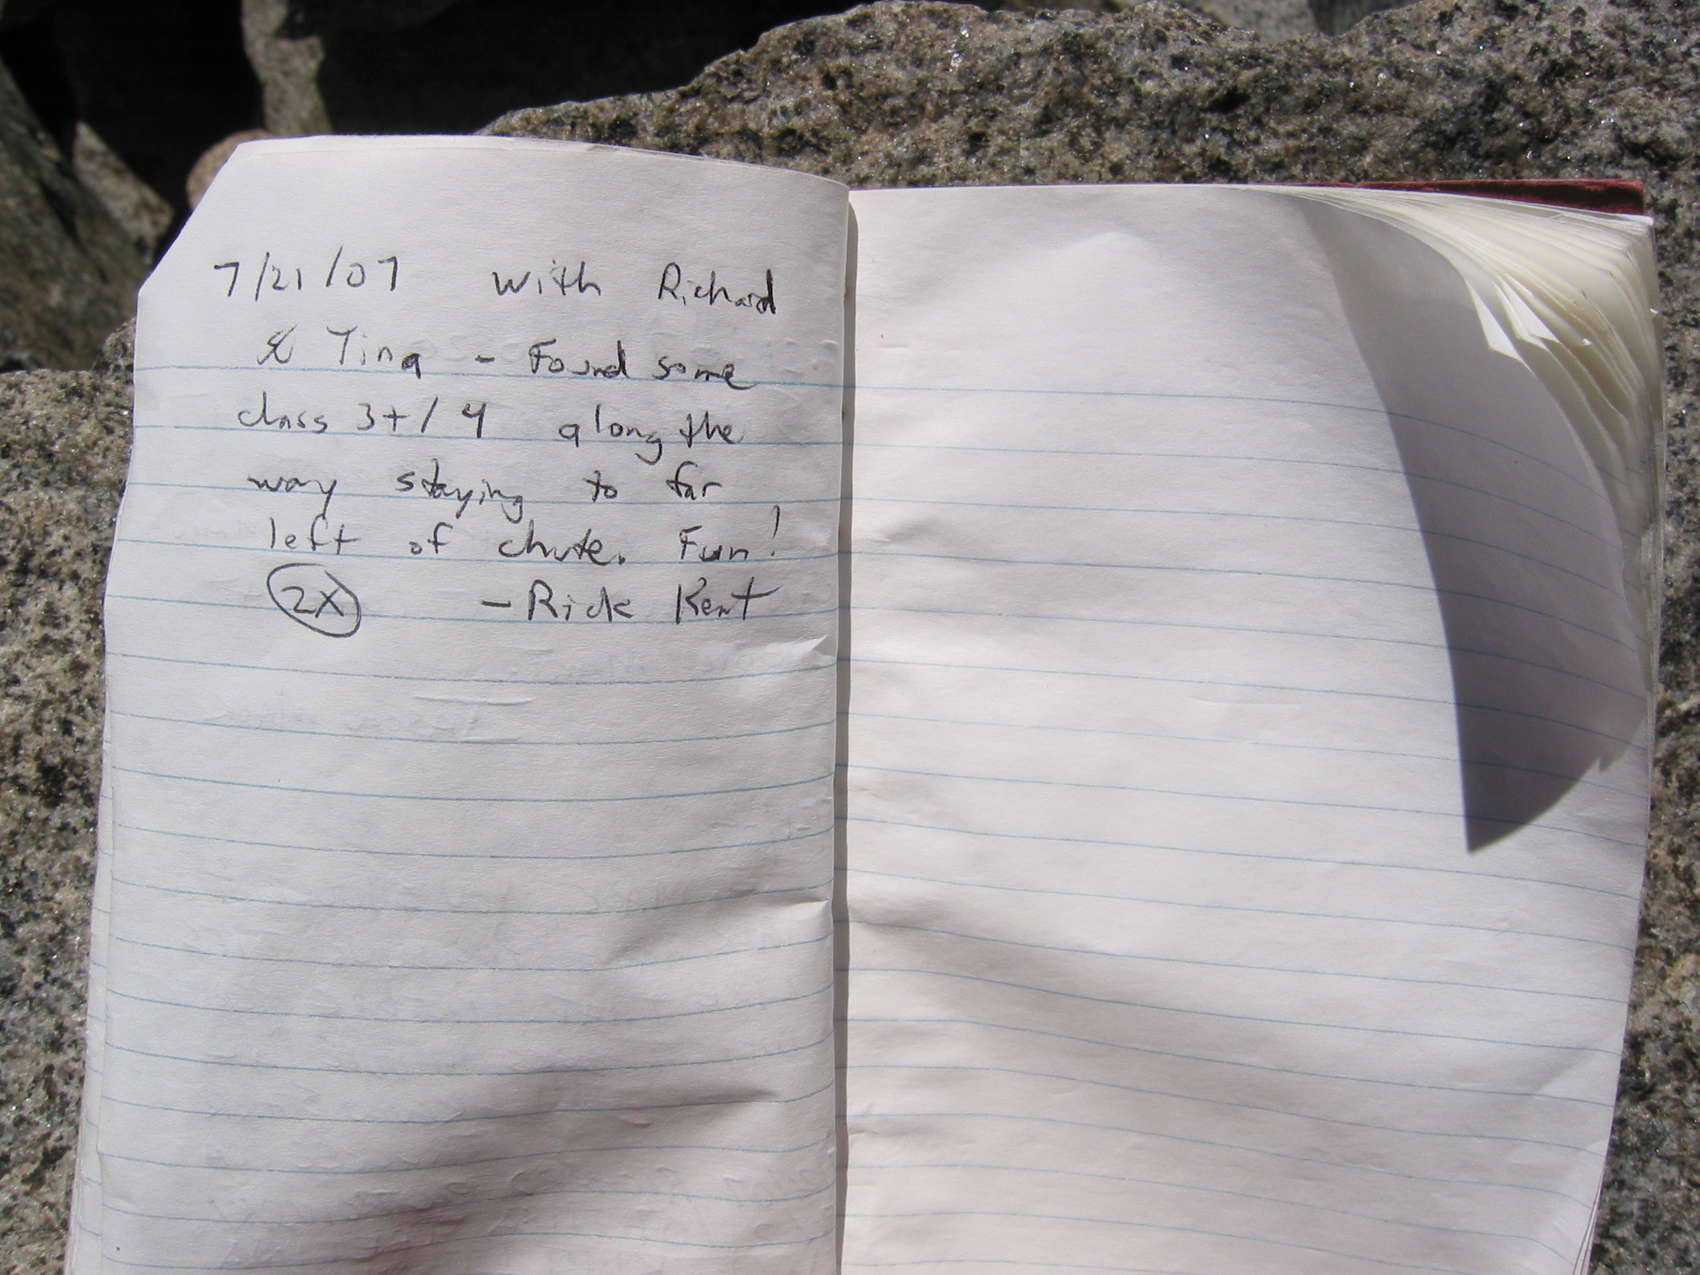 7/21/07 with Richard
& Tina - Found some
class 3+/4 along the
way staying to far
left of chute. Fun!
2X - Rick Kent